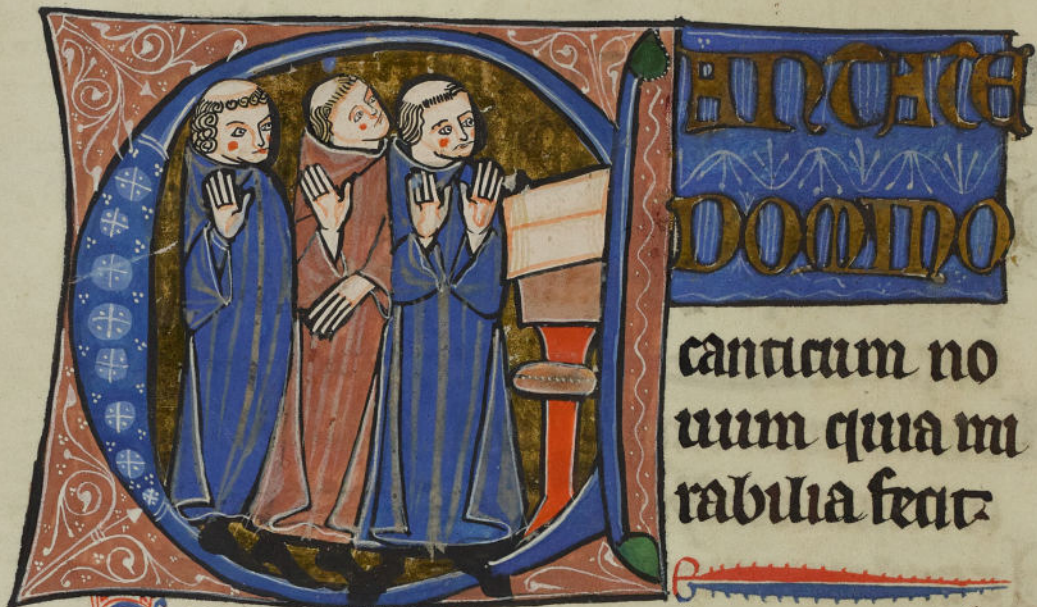 CANTATE
DOMINO
canticum no
uum quia mi
rabilia fecit